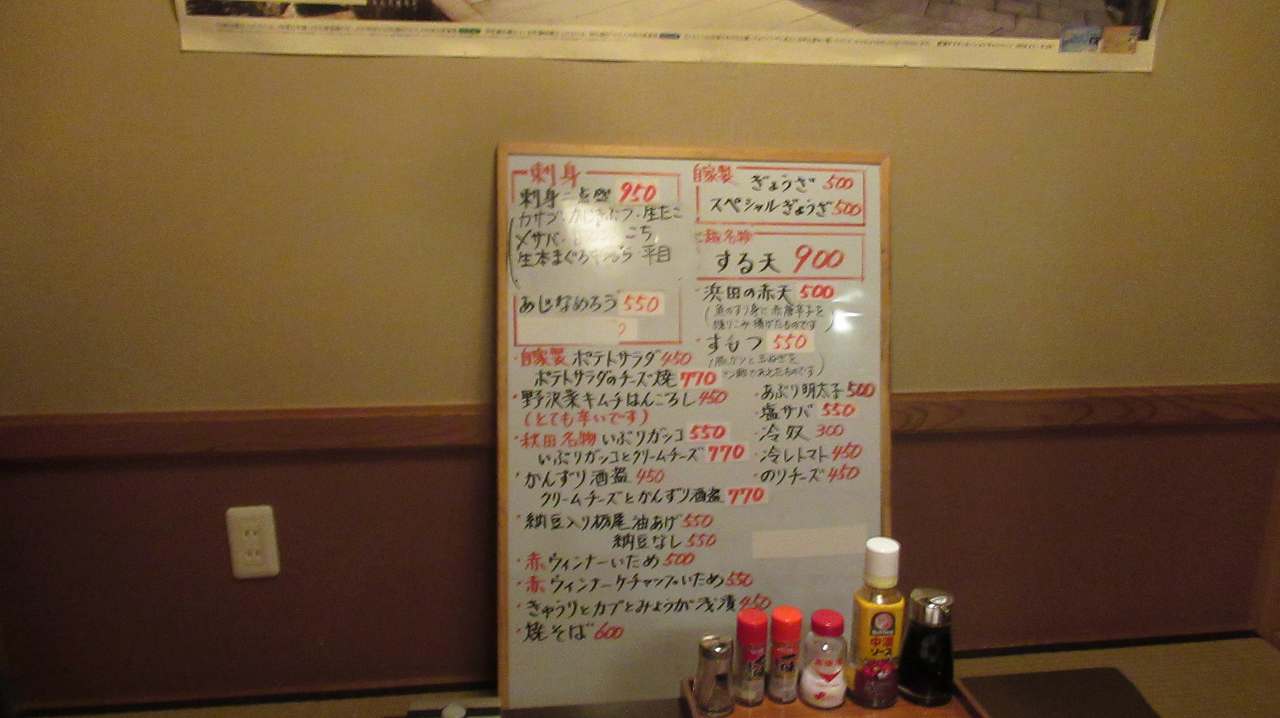 刺身
刺身二点盛 950
カサゴ・かじき
・生たこ
〆サバ・
こち
生本まぐろ
平目
あじなめろう 550
・自家製 ポテトサラダ 450
ポテトサラダのチーズ焼 770
・野沢菜キムチはんごろし 450
(とても辛いです)
・秋田名物 いぶりガッコ 550
いぶりガッコとクリームチーズ 770
・かんずり酒盗 450
クリームチーズとかんずり酒盗 770
・納豆入り栃尾油あげ 550
納豆なし 550
・赤ウィンナーいため 500
・赤ウィンナーケチャップいため 550
・きゅうりとカブとみょうが浅漬 450
・焼そば 600
自家製
ぎょうざ 500
スペシャルぎょうざ 500
名物
する天 900
・浜田の赤天 500
(魚のすり身に赤唐辛子を
練りこみ揚げたものです)
・すもつ 550
・あぶり明太子 500
・塩サバ 550
・冷奴 300
・冷しトマト 450
・のりチーズ 450
中濃
ソース